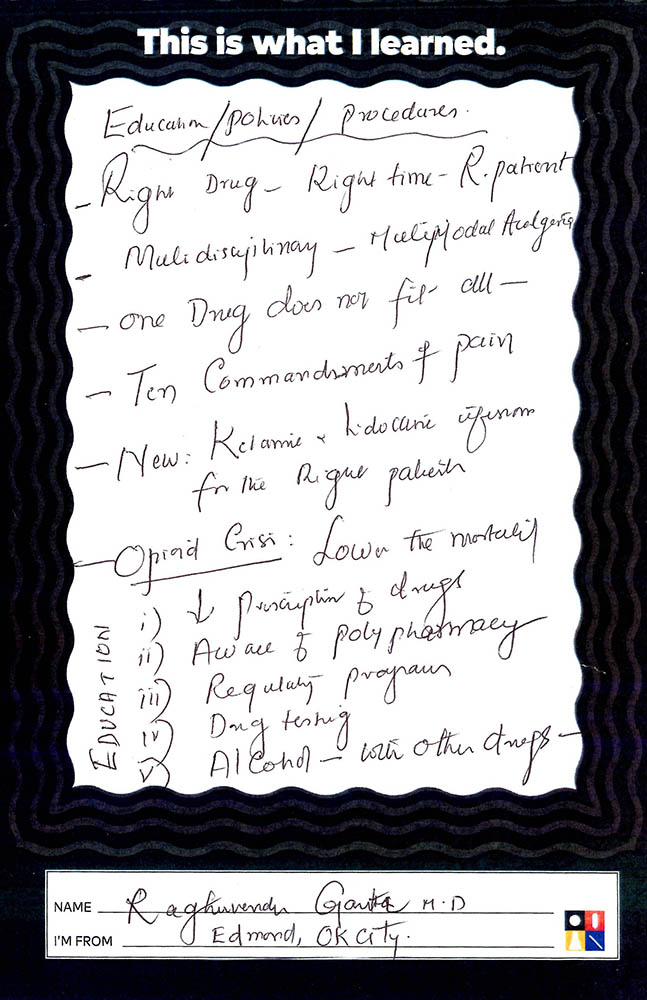 This is what I learned.
Education/policies/ Procedures.
- Right Drug - Right time - R. patient
- Multidisciplinary - Multimodal Analgesia
- one Drug does not fit all -
- Ten Commandments of pain
- New: Ketamine & Lidocaine infusions
for the Right patients
- Opioid Crisis: Lower the mortality
EDUCATION
i) ↓ prescription of drugs
ii) Aware of polypharmacy
iii) Regulatory programs
iv) Drug testing
v) Alcohol - with other drugs -
NAME Raghuvendra M.D
I'M FROM Edmond, OK City.